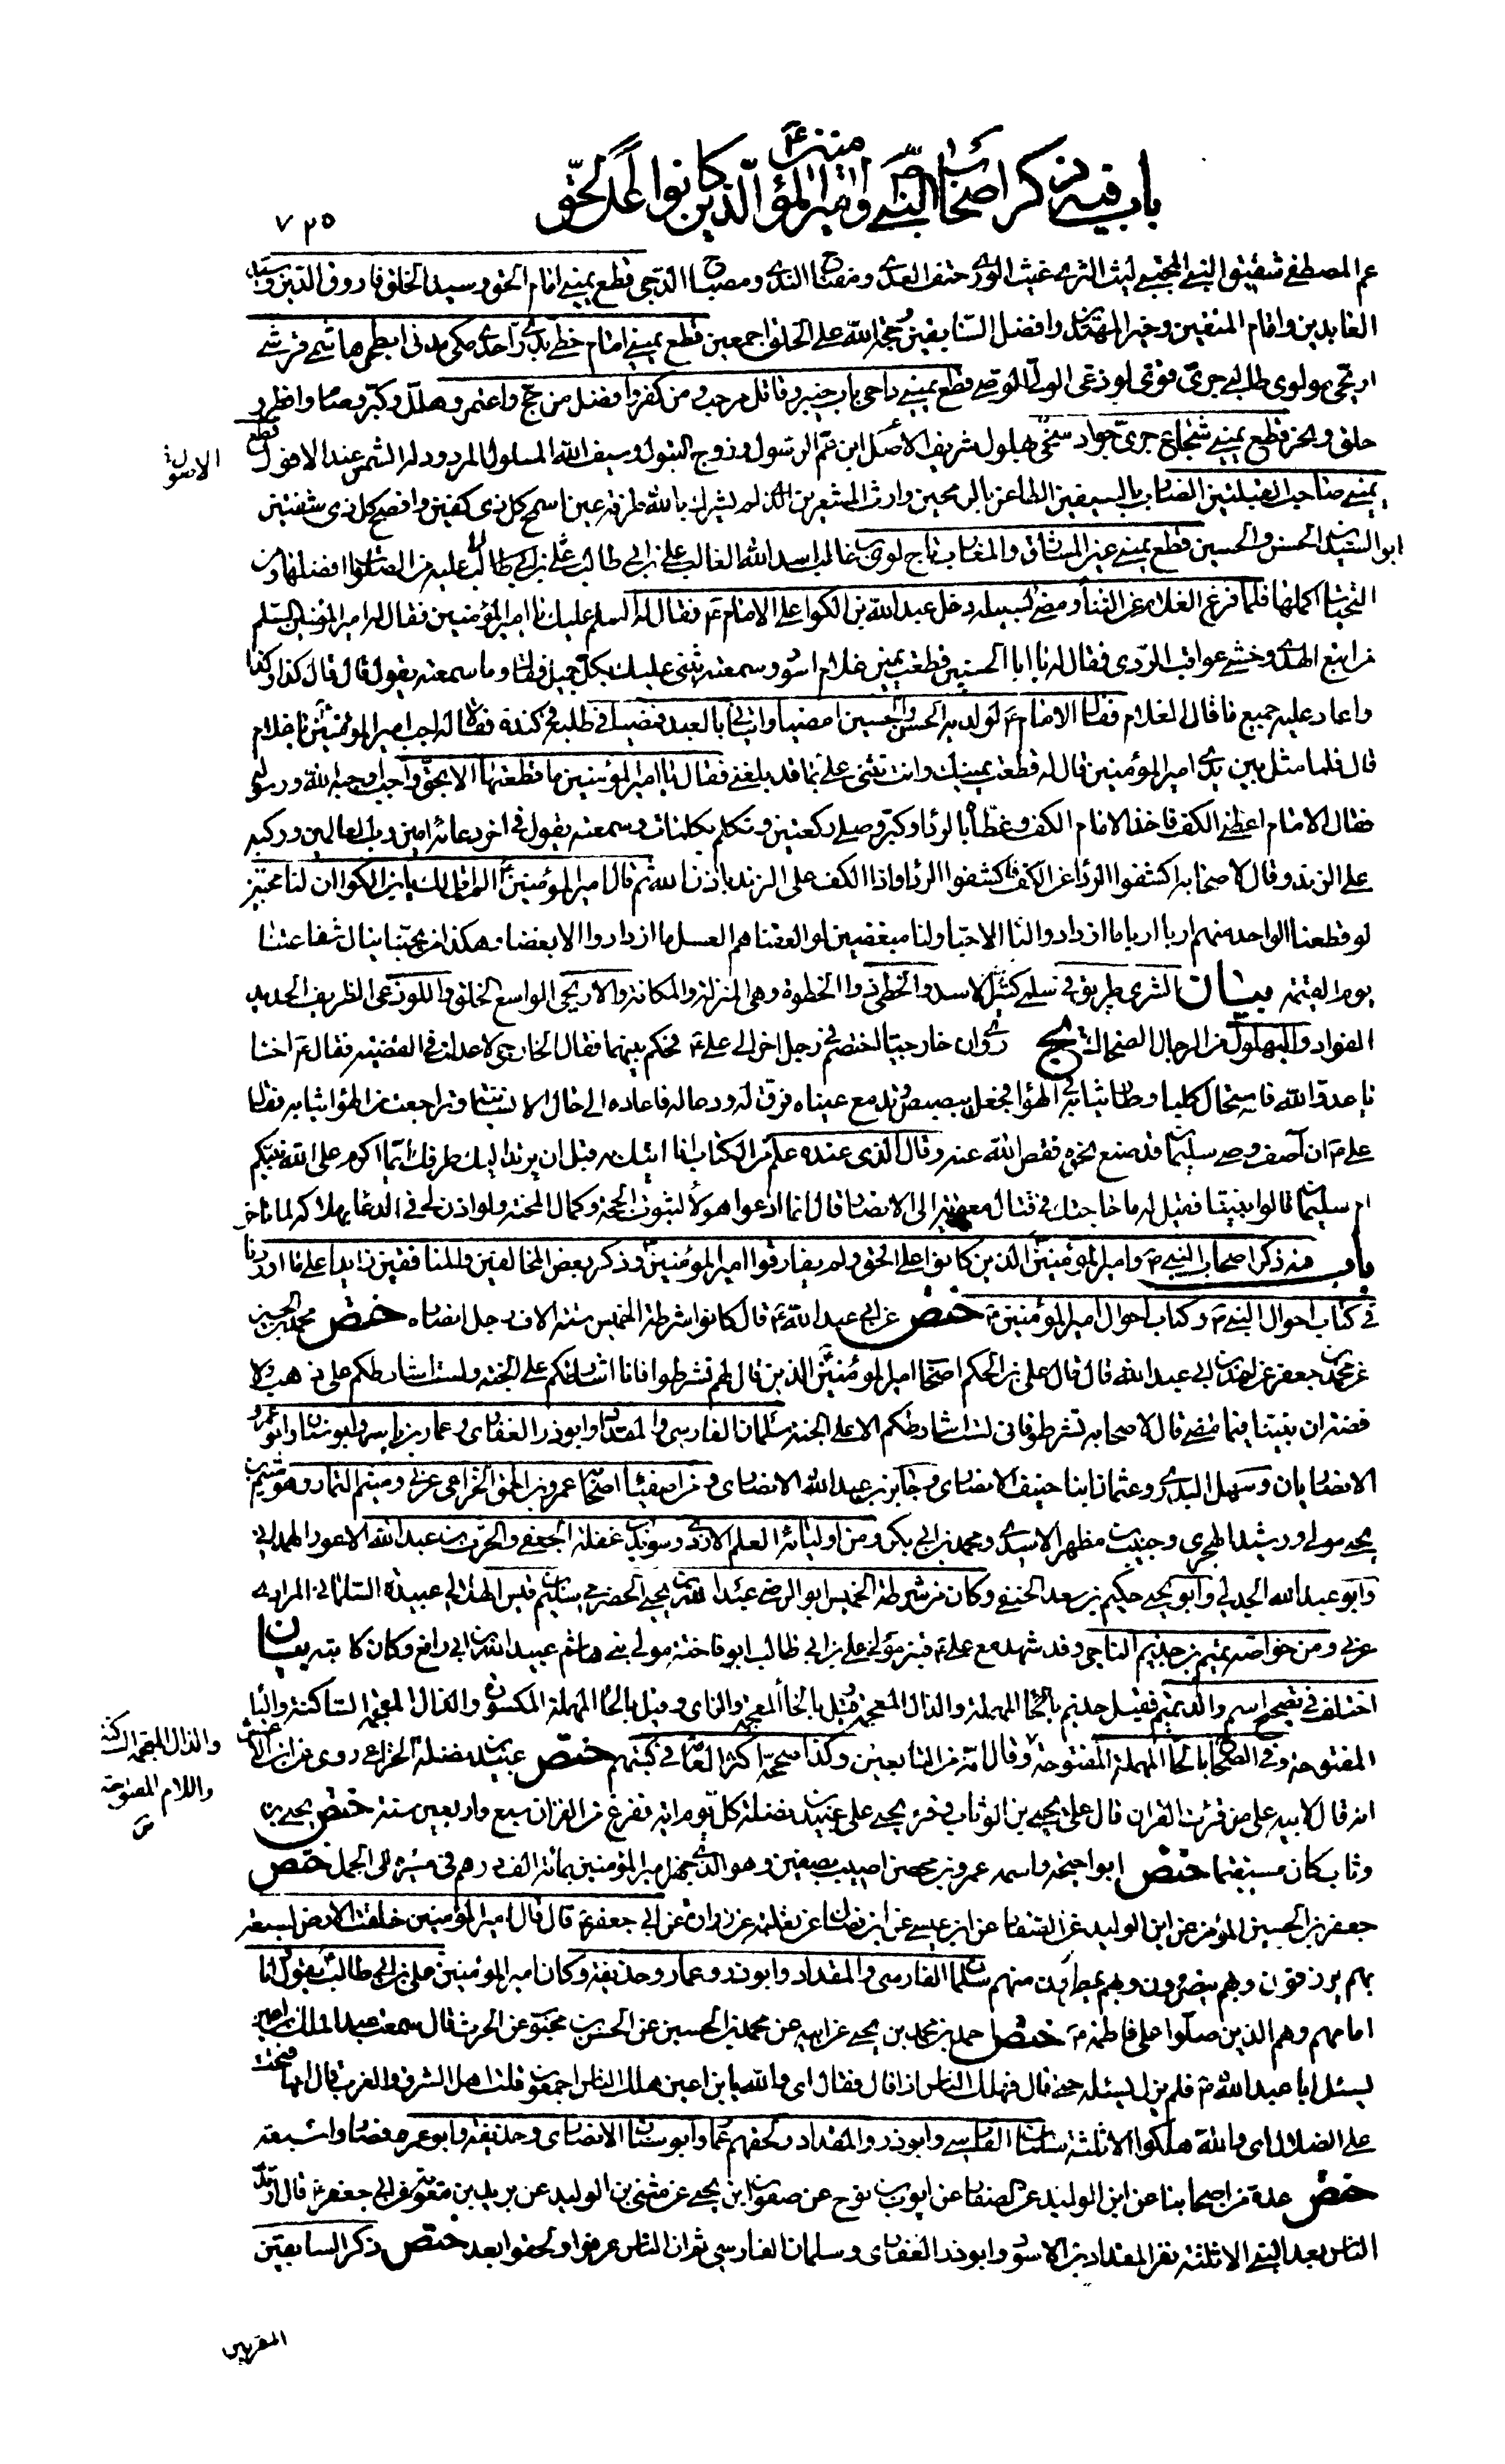 باب فيه ذكر اصحاب النبي وامير المؤمنين الذين كانوا على الحق
٧٣٥
عم المصطفى شقيق النبي المجتبى ليث الثرى غيث الورى حتف العدى ومفتاح الندى ومصباح الدجى قطع يمينى امام الحق وسيد الخلق فاروق الدين وسيد
العابدين وامام المتقين وخير المهتدين وافضل السابقين وحجة الله على الخلق اجمعين قطع يمينى امام خطى بدرى احدى مكى مدنى ابطحى هاشمى قرشى
اريحى مولوى طالبى جرى قوى لوذعى الولى الوصى قطع يمينى داحى باب خيبر وقاتل مرحب ومن كفر وافضل من حج واعتمر وهلل وكبر وصام وافطر و
حلق ونحر قطع يمينى شجاع جرى جواد سخى بهلول شريف الاصل ابن عم الرسول وزوج البتول وسيف الله المسلول المردود له الشمس عند الافول قطع
يمينى صاحب القبلتين الضارب بالسيفين الطاعن بالرمحين وارث المشعرين الذى لم يشرك بالله طرفة عين اسمح كل ذى كفين وافصح كل ذى شفتين
ابو السيدين الحسن والحسين قطع يمينى عين المشارق والمغارب تاج لوى بن غالب اسد الله الغالب على بن ابي طالب عليه من الصلوات افضلها ومن
التحيات اكملها فلما فرغ الغلام عن الثناء ومضى لسبيله دخل عبد الله بن الكوا على الامام ع فقال له السلم عليك يا امير المؤمنين فقال له امير المؤمنين السلم
من اتبع الهدى وخشى عواقب الردى فقال له يا ابا الحسنين قطعت يمين غلام اسود وسمعته يثنى عليك بكل جميل فقال وما سمعته يقول قال قال كذا وكذا
واعاد عليه جميع ما قال الغلام فقال الامام ع لولديه الحسن والحسين امضيا واتيانى بالعبد فمضيا فى طلبه فى كندة فقالا له اجب امير المؤمنين يا غلام
قال فلما مثل بين يدى امير المؤمنين قال له قطعت يمينك وانت تثنى على بما قد بلغنى فقال يا امير المؤمنين ما قطعتها الا بحق واجب اوجبه الله ورسوله
فقال الامام اعطنى الكف فاخذ الامام الكف وغطاه بالرداء وكبر وصلى ركعتين وتكلم بكلمات وسمعته يقول فى اخر دعائه امين رب العالمين وركبه
على الزند وقال لاصحابه اكشفوا الرداء عن الكف فكشفوا الرداء واذا الكف على الزند باذن الله ثم قال امير المؤمنين الم اقل لك يا بن الكوا ان لنا محبين
لو قطعنا الواحد منهم اربا اربا ما ازدادوا لنا الا حبا ولنا مبغضين لو العقناهم العسل ما ازدادوا الا بغضا وهكذا من يحبنا ينال شفاعتنا
يوم القيمة بيان الشرى طريق فى سلمى كثير الاسد والخطى ذوا الخطوة وهى المنزلة والمكانة والاريحى الواسع الخلق واللوذعى الظريف الحديد
الفؤاد والبهلول من الرجال الضحاك يج روى ان خارجيا اختصم فى رجل اخر الى على ع فحكم بينهما فقال الخارجى لا عدلت فى القضية فقال ع اخسا
يا عدو الله فاستحال كلبا وطارت ثيابه فى الهواء فجعل يبصبص وقد دمع عيناه فرق له ودعا له فاعاده الى حال الانسانية وتراجعت من الهواء ثيابه فقال
على ع ان آصف وصى سليمان قد صنع نحوه فقص الله عنه وقال الذى عنده علم من الكتاب انا اتيك به قبل ان يرتد اليك طرفك ايما اكرم على الله نبيكم
ام سليمان قالوا نبينا فقيل له ما حاجتك فى قتال معوية الى الانصار قال انما ادعوا هولاء لثبوت الحجة وكمال المحنة ولو اذن لى فى الدعا بهلاكه لما تاخر
باب فيه ذكر اصحاب النبى ص وامير المؤمنين الذين كانوا على الحق ولم يفارقوا امير المؤمنين وذكر بعض المخالفين والمنافقين زايدا على ما اوردنا
فى كتاب احوال النبى ص وكتاب احوال امير المؤمنين ع ختص عن ابي عبد الله ع قال كانوا شرطة الخميس ستة الاف رجل انصاره ختص محمد بن الحسين
عن محمد بن جعفر عن احمد بن ابي عبد الله قال قال على بن الحكم اصحاب امير المؤمنين الذين قال لهم تشرطوا فانا اشارطكم على الجنة ولست اشارطكم على ذهب ولا
فضة ان نبينا فيما مضى قال لاصحابه تشرطوا فانى لست اشارطكم الا على الجنة سلمان الفارسى والمقداد وابوذر الغفارى وعمار بن ياسر وابو سنان وابو عمرو
الانصاريان وسهل البدرى وعثمان ابنا حنيف الانصارى وجابر بن عبد الله الانصارى ومن اصفياء اصحابه عمرو بن الحمق الخزاعى عربى وميثم التمار وهو ميثم بن
يحيى مولى ورشيد الهجرى وحبيب بن مظهر الاسدى ومحمد بن ابي بكر ومن اوليائه العلم الازدى وسويد بن غفلة الجعفى والحرث بن عبد الله الاعور الهمدانى
وابو عبد الله الجدلى وابو يحيى حكيم بن سعد الحنفى وكان من شرطة الخميس ابو الرضى عبد الله بن يحيى الحضرمى سليم بن قيس الهلالى عبيدة السلمانى المرادى
عربى ومن خواصه تميم بن حذيم الناجى وقد شهد مع على ع قنبر مولى على بن ابي طالب ابو فاختة مولى بنى هاشم عبيد الله بن ابي رافع وكان كاتبه بيان
اختلف فى تصحيح اسم والد تميم فقيل حذيم بالحاء المهملة والذال المعجمة وقيل بالخاء المعجمة والزاى وقيل بالحاء المهملة المكسورة والذال المعجمة الساكنة والياء
المفتوحة وفى الصحاح بالحاء المهملة المفتوحة وقال انه من التابعين وكذا صححه اكثر العامة فى كتبهم ختص عبيد بن نضلة الخزاعى روى عن ابن الاعمش
انه قال لابيه على من قرئت القران قال على يحيى بن الوثاب وقرء يحيى على عبيد بن نضلة كل يوم اية ففرغ من القران سبع واربعين سنة ختص يحيى بن
وثاب كان مستقيما ختص ابو احيحة واسمه عمرو بن محصن اصيب بصفين وهو الذى جهز امير المؤمنين بمائة الف درهم فى مسيره الى الجمل ختص
جعفر بن الحسين المؤمن عن ابن الوليد عن الصفار عن ابن عيسى عن ابن فضال عن ثعلبة عن زرارة عن ابي جعفر ع قال قال امير المؤمنين خلقت الارض لسبعة
بهم يرزقون وبهم ينصرون وبهم يمطرون منهم سلمان الفارسى والمقداد وابوذر وعمار وحذيفة وكان امير المؤمنين على بن ابي طالب يقول انا
امامهم وهم الذين صلوا على فاطمة ع ختص احمد بن محمد بن يحيى عن ابيه عن محمد بن الحسين عن الحسن بن محبوب عن الحرث قال سمعت عبد الملك بن اعين
يسئل ابا عبد الله ع فلم يزل يسئله حتى قال فهلك الناس اذا قال فقال اى والله يا بن اعين هلك الناس اجمعون قلت اهل الشرق والغرب قال انها فتحت
على الضلال اى والله هلكوا الا ثلثة سلمان الفارسى وابوذر والمقداد ولحقهم عمار وابو سنان الانصارى وحذيفة وابو عمرة فصاروا سبعة
ختص عدة من اصحابنا عن ابن الوليد عن الصفار عن ايوب بن نوح عن صفوان بن يحيى عن مثنى بن الوليد عن بريد بن معوية عن ابي جعفر ع قال ارتد
الناس بعد النبى الا ثلثة نفر المقداد بن الاسود وابوذر الغفارى وسلمان الفارسى ثم ان الناس عرفوا ولحقوا بعد ختص ذكر السابقين
المقربين
والذال المعجمة الساكنة
واللام المفتوحة